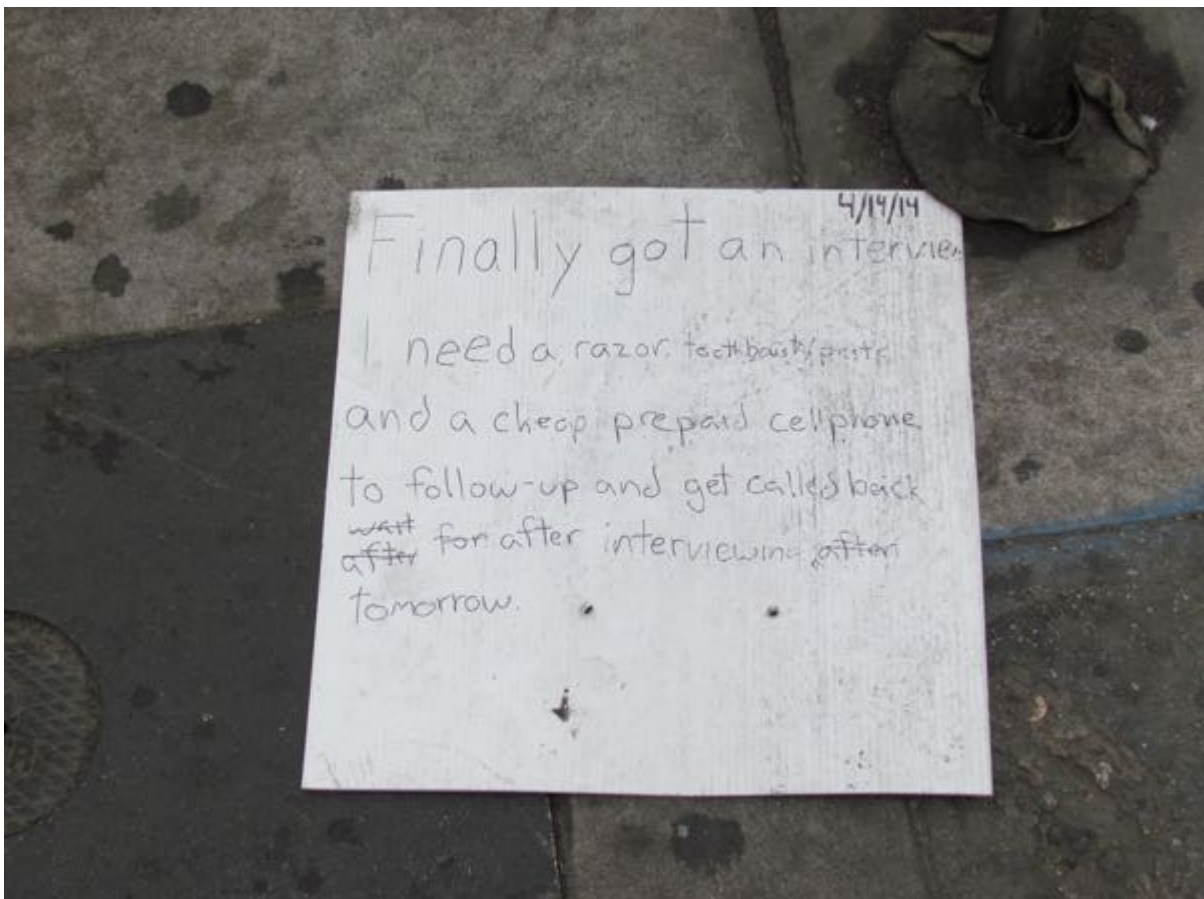 4/14/14
Finally got an interview
I need a razor. toothbrush/paste
and a cheap prepaid cellphone
to follow-up and get called back
wait
after for after interviewing after
tomorrow.